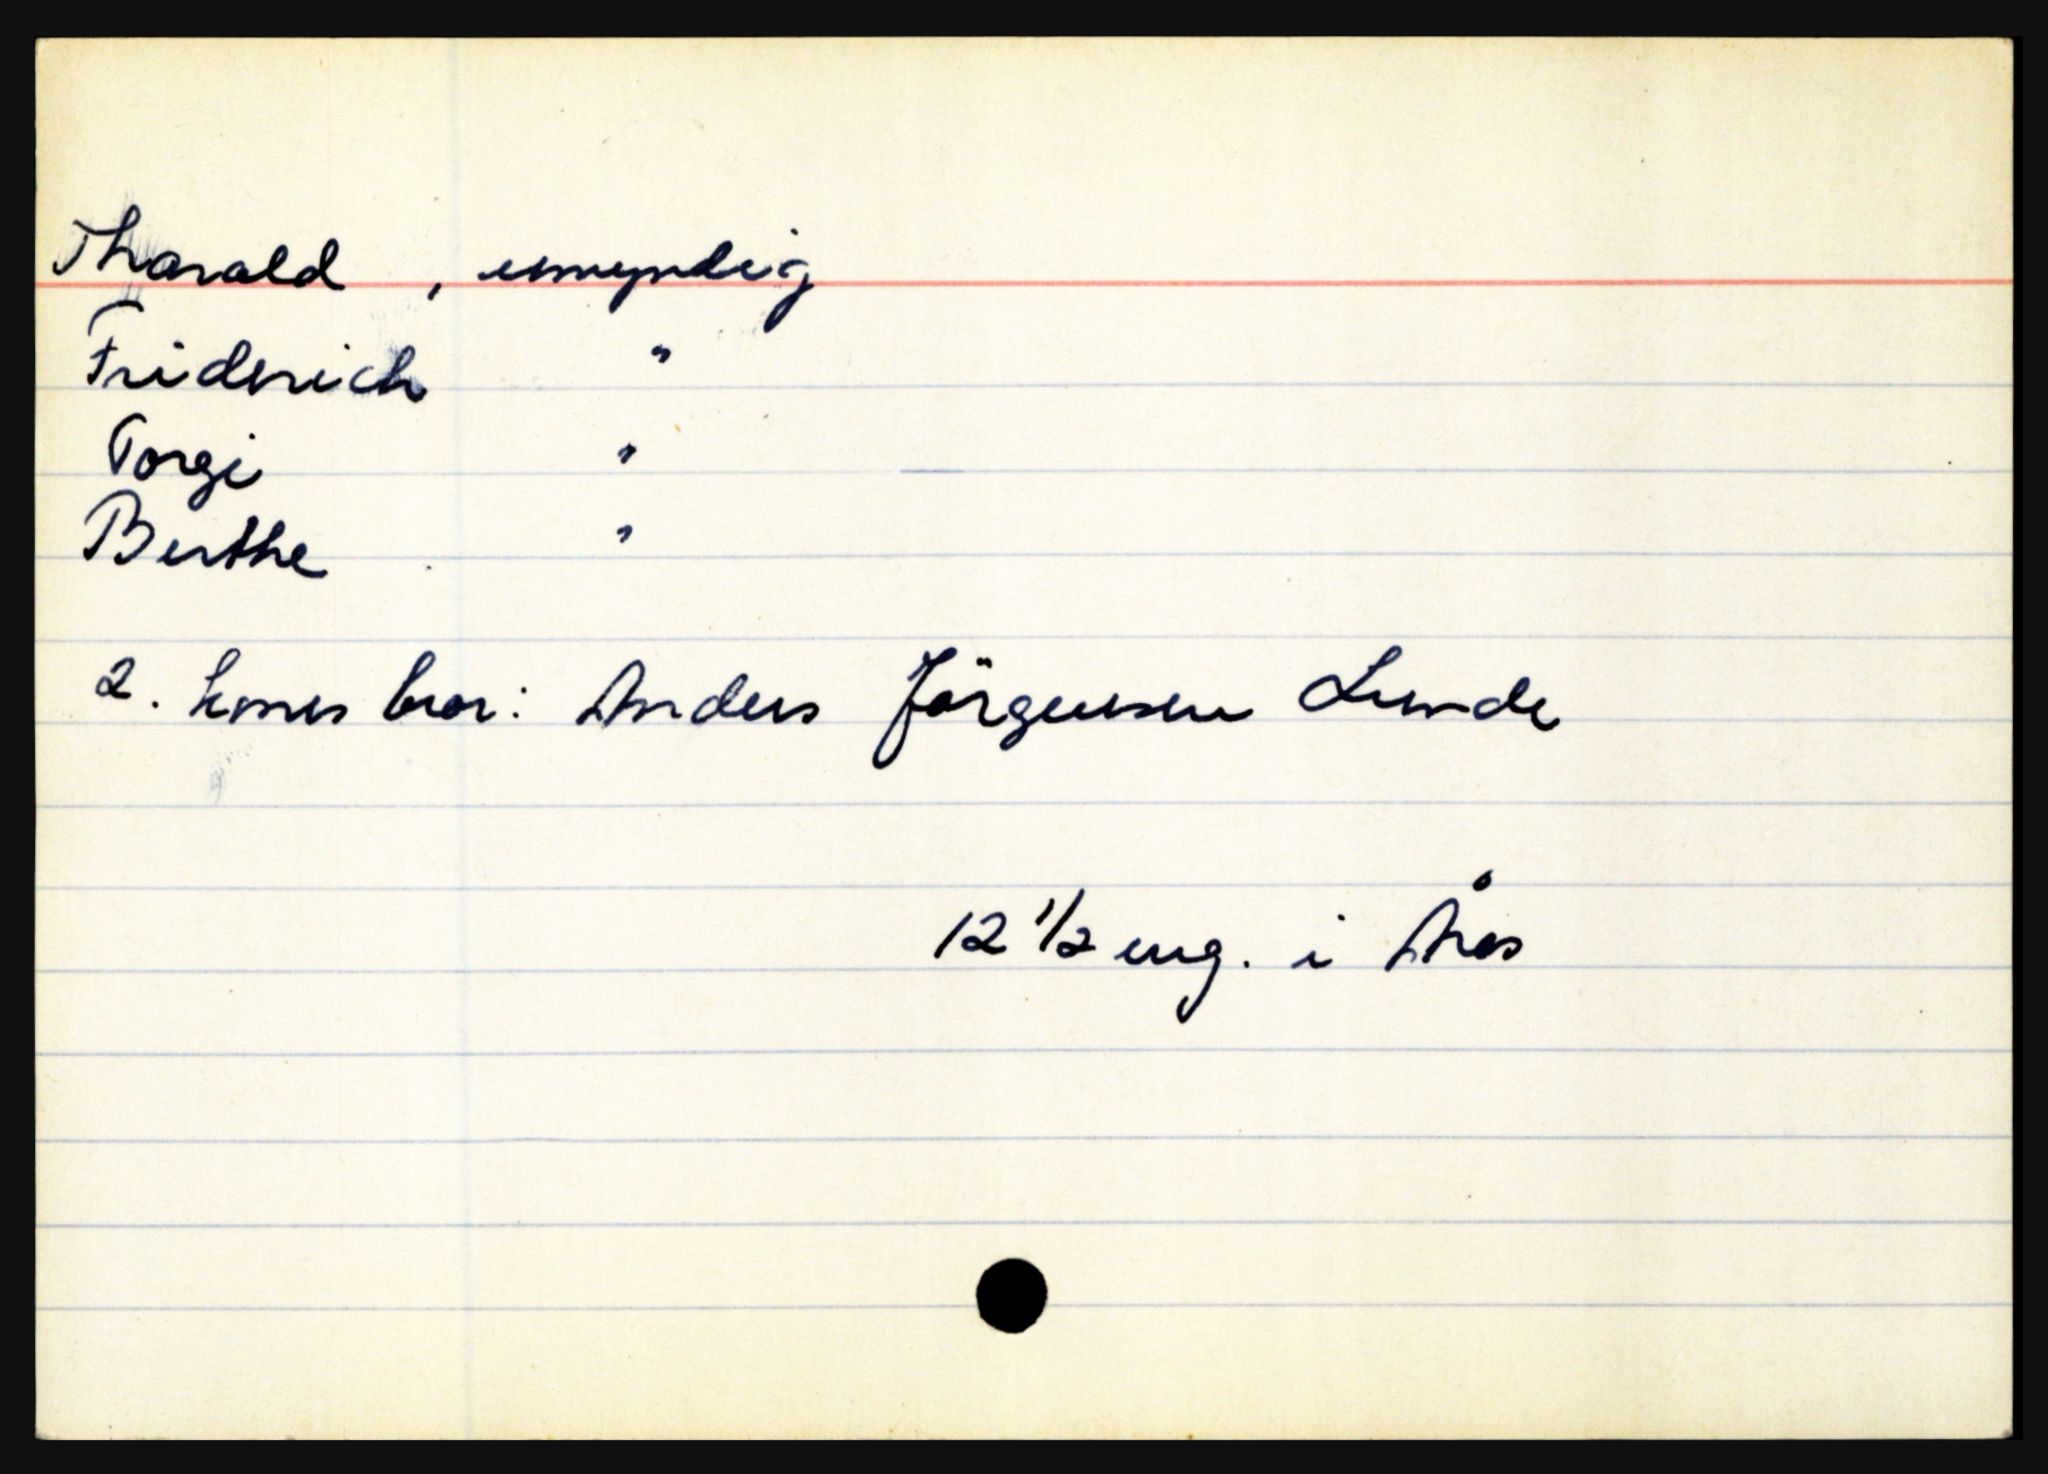 Tharald , umyndig
Friderich "
Torgi "
Berthe "
2. kones bror: Anders Jörgensen Lunde
12 1/2 eng. i Ås